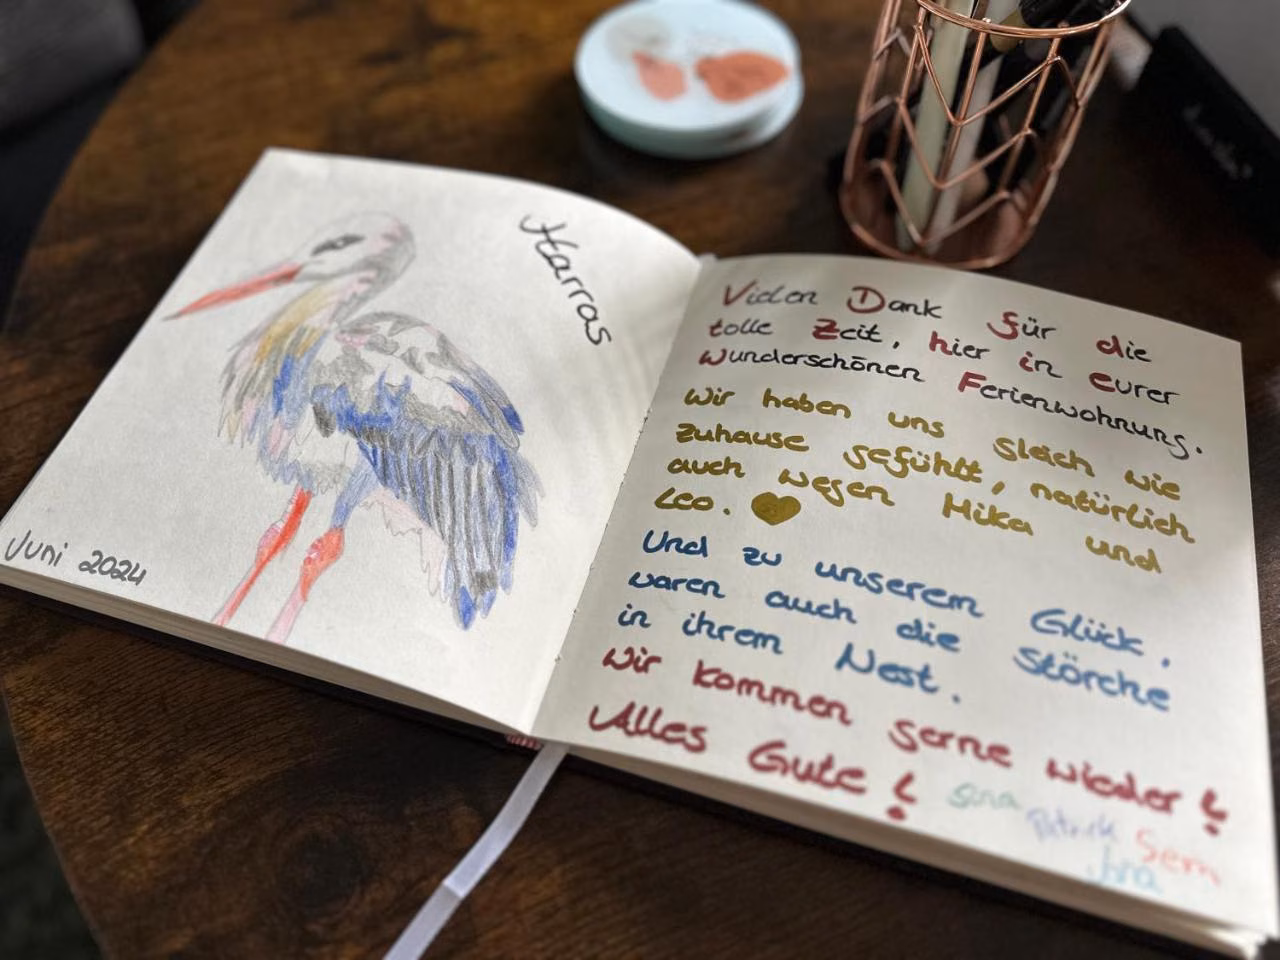 Harras
Juni 2024
Vielen Dank für die
tolle Zeit, hier in eurer
wunderschönen Ferienwohnung.
Wir haben uns gleich wie
zuhause gefühlt, natürlich
auch wegen Mika und
Leo.
Und zu unserem Glück,
waren auch die Störche
in ihrem Nest.
Wir kommen gerne wieder!
Alles Gute!
Sina
Patrick
Sem